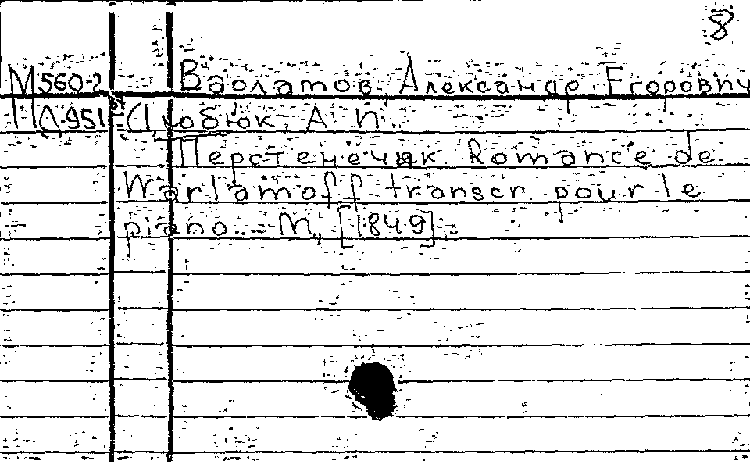 8
М 560-2 Варламов, Александр Егорович
Д 951 Дюбюк, А. И.
Перстенечик. Romance de
Warlamoff transcr. pour le
piano. - М., [1849].